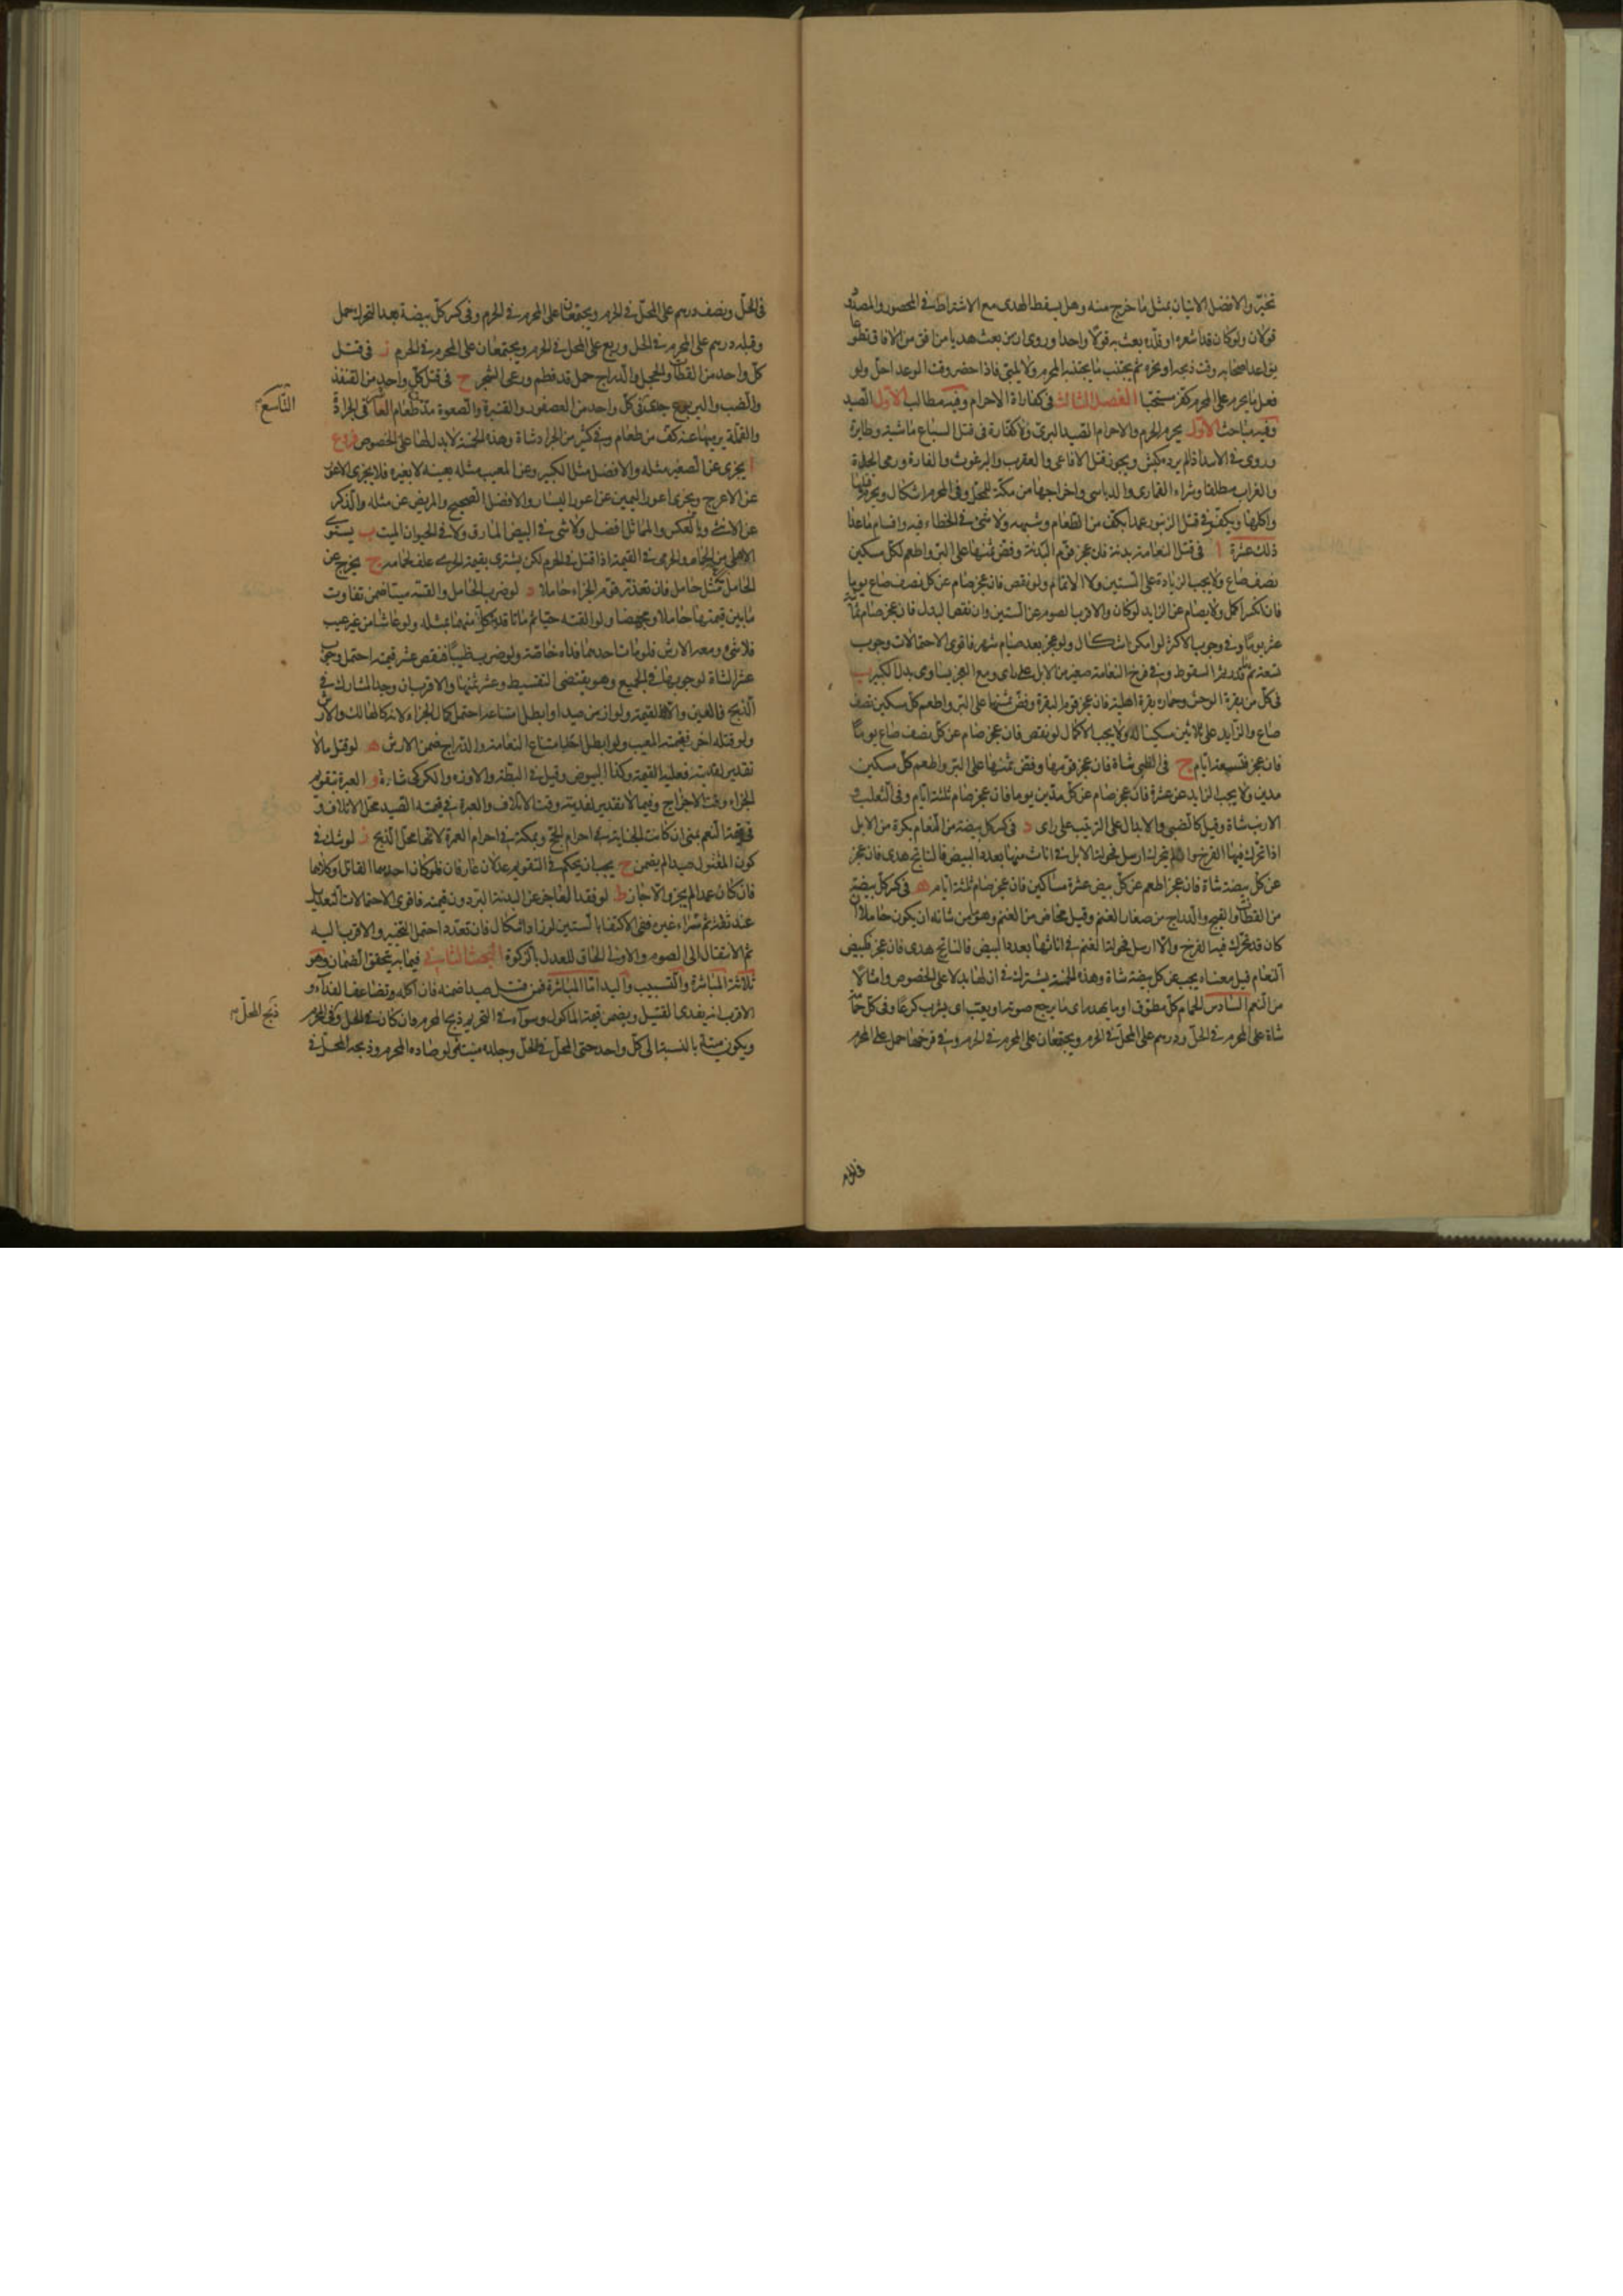 تخيّر والافضل الاتيان بمثل ما خرج منه وهل يسقط الهدى مع الاشتراط في المحصور والمصدود
قولان ولو كان قد اشعره او قلّده بعث به قولا واحدا وروى ان من بعث هديا من افق من الافاق تطوعا
يواعد اصحابه وقت ذبحه او نحره ثم يجتنب ما يجتنبه المحرم ولا يلبّى فاذا حضر وقت الوعد احلّ ولو
فعل ما يحرم على المحرم كفّر مستحبا الفصل الثالث في كفارة الاحرام وفيه مطالب الاول الصيد
وفيه مباحث الاول يحرم الحرم والاحرام الصيد البرىّ ولا كفّارة في قتل السباع ماشية وطايرة
وروى في الاسد اذا لم يرده كبش ويجوز قتل الافاعى والعقرب والبرغوث والفارة ورمى الحداة
والغراب مطلقا وشراء القمارى والدباسى واخراجها من مكة للمحلّ وفى المحرم اشكال ويحرم قتلها
واكلها ويكفّر في قتل الزنبور عمدا بكفّ من الطعام وشبهه ولا شئ في الخطاء فيه واقسام ما عدا
ذلك عشرة ا في قتل النعامة بدنة فان عجز قوّم البدنة وفضّ ثمنها على البرّ واطعم لكل مسكين
نصف صاع ولا يجب الزيادة على الستين ولا الاتمام لو نقص فان عجز صام عن كل نصف صاع يوما
فان انكسر اكمل ولا يصام عن الزايد لو كان والاقرب الصوم عن الستين وان نقص البدل فان عجز صام ثمانية
عشر يوما وفى وجوب الاكثر لو امكن اشكال ولو عجز بعد صيام شهر فاقوى الاحتمالات وجوب
تسعة ثم قدر ثم السقوط وفى فرخ النعامة صغير من الابل على راى ومع العجز يساوى بدل الكبير ب
في كل من بقرة الوحش وحماره بقرة اهلية فان عجز قوم البقرة وفضّ ثمنها على البر واطعم كل مسكين نصف
صاع والزايد على ثلاثين مسكينا له ولا يجب الاكمال لو نقص فان عجز صام عن كلّ نصف صاع يوما
فان عجز فتسعة ايّام ج في الظبى شاة فان عجز قومها وفضّ ثمنها على البر واطعم كلّ مسكين
مدين ولا يجب الزايد عن عشرة فان عجز صام عن كل مدّين يوما فان عجز صام ثلثة ايام وفى الثعلب و
الارنب شاة وقيل كالضبى والابدال على الترتيب على راى د في كسر كل بيضة من النعام بكرة من الابل
اذا تحرك فيها الفرخ وان لم يتحرك ارسل فحولة الابل في اناث منها بعدد البيض فالناتج هدى فان عجز
عن كلّ بيضة شاة فان عجز اطعم عن كلّ بيض عشرة مساكين فان عجز صام ثلثة ايام ه في كسر كلّ بيضة
من القطا والقبج والدراج من صغار الغنم وقيل مخاض من الغنم وهو ما من شانه ان يكون حاملا ان
كان قد تحرك فيها الفرخ والا ارسل فحولة الغنم في اناثها بعدد البيض فالناتج هدى فان عجز فكبيض
النعام قيل معناه يجب عن كل بيضة شاة وهذه الخمسة يشترك في ان لها بدلا على الخصوص وامثالا
من النعم السادس الحمام كلّ مطوّق او ما يهدر اى ما يرجع صوته او يعبّ اى يشرب كرعا وفى كل حمامة
شاة على المحرم في الحلّ ودرهم على المحلّ في الحرم ويجتمعان على المحرم في الحرم وفى فرخها حمل على المحرم
في الحلّ ونصف درهم على المحلّ في الحرم ويجتمعان على المحرم في الحرم وفى كسر كلّ بيضة بعد التحرك حمل
وقبله درهم على المحرم في الحل وربع على المحل في الحرم ويجتمعان على المحرم في الحرم ز في قتل
كلّ واحد من القطا والحجل والدراج حمل قد فطم ورعى الشجر ح في قتل كل واحد من القنفذ
والضب واليربوع جدى في كلّ واحد من العصفور والقنبرة والصعوة مدّ طعام العاشر في الجرادة
التّاسع
والقملة يرميها عنه كفّ من طعام وفى كثير من الجراد شاة وهذه الخمسة لا بدل لها على الخصوص فروع
ا يجزى عن الصغير مثله والافضل مثل الكبير وعن المعيب مثله بعينه لا بغيره فلا يجزى الاعور
عن الاعرج ويجزى اعور اليمين عن اعور اليسار والافضل الصحيح والمريض عن مثله والذكر
عن الانثى وبالعكس والمماثل افضل ولا شئ في البيض المارق ولا في الحيوان الميت ب يستوى
الاهلى من الحمام والحرمى في القيمة اذا قتل في الحرم لكن يشترى بقيمة الحرمى علف لحمامه ج يخرج عن
الحامل مثل حامل فان تعذر قوّم الجزاء حاملا د لو ضرب الحامل والقته ميتا ضمن تفاوت
ما بين قيمتها حاملا ومجهضا ولو القته حيا ثم ماتا فدى كلا منهما بمثله ولو عاشا من غير عيب
فلا شئ ومعه الارش فلو مات احدهما فداه خاصة ولو ضرب ظبيا فنقص عشر قيمته احتمل وجوب
عشر الشاة لوجوبها في الجميع وهو يقتضى التقسيط وعشر ثمنها والاقرب ان وجد المشارك في
الذبح فالعين والا القيمة ولو ازمن صيدا وابطل امتناعه احتمل كمال الجزاء لانه كالهالك والارش
ولو قتله اخر فقيمته المعيب ولو ابطل احد امتناعى النعامة والدراج ضمن الارش ه لو قتل ما لا
تقدير لفديته فعليه القيمة وكذا البيوض وقيل في البطة والاوزة والكركى شاة و العبرة بتقويم
الجزاء وقت الاخراج وفيما لا تقدير لفديته وقت الاتلاف والعبرة في قيمة الصيد محل الاتلاف و
في قيمة النعم بمنى ان كانت الجناية في احرام الحج وبمكة في احرام العمرة لانها محل الذبح ز لو شك في
كون المقتول صيدا لم يضمن ح يجب ان يحكم في التقويم عدلان عارفان فلو كان احدهما القاتل او كلاهما
فان كان عمدا لم يجز والا جاز ط لو فقد العاجز عن البدنة البرّ دون قيمته فاقوى الاحتمالات التعديل
عند ثقة ثم شراء غيره ففى الاكتفا بالستين لو زاد اشكال فان تعدد احتمل التخيير والاقرب اليه
ثم الانتقال الى الصوم والاولى الحاق المعدل بالزكوة البحث الثانى فيما به يتحقق الضمان وهو
ثلاثة المباشرة والتسبيب واليد امّا المباشرة فمن قتل صيدا ضمنه فان اكله وتضاعف الفداء و
الاقرب انه يفدى القتيل ويضمن قيمة الماكول وسواء في التحريم ذبح المحرم وان كان في الحل وفى الحرم
ذبح المحلّ
ويكون ميتة بالنسبة الى كلّ واحد حتى المحلّ في الحلّ وجلده ميتة ولو صاده المحرم وذبحه المحل في